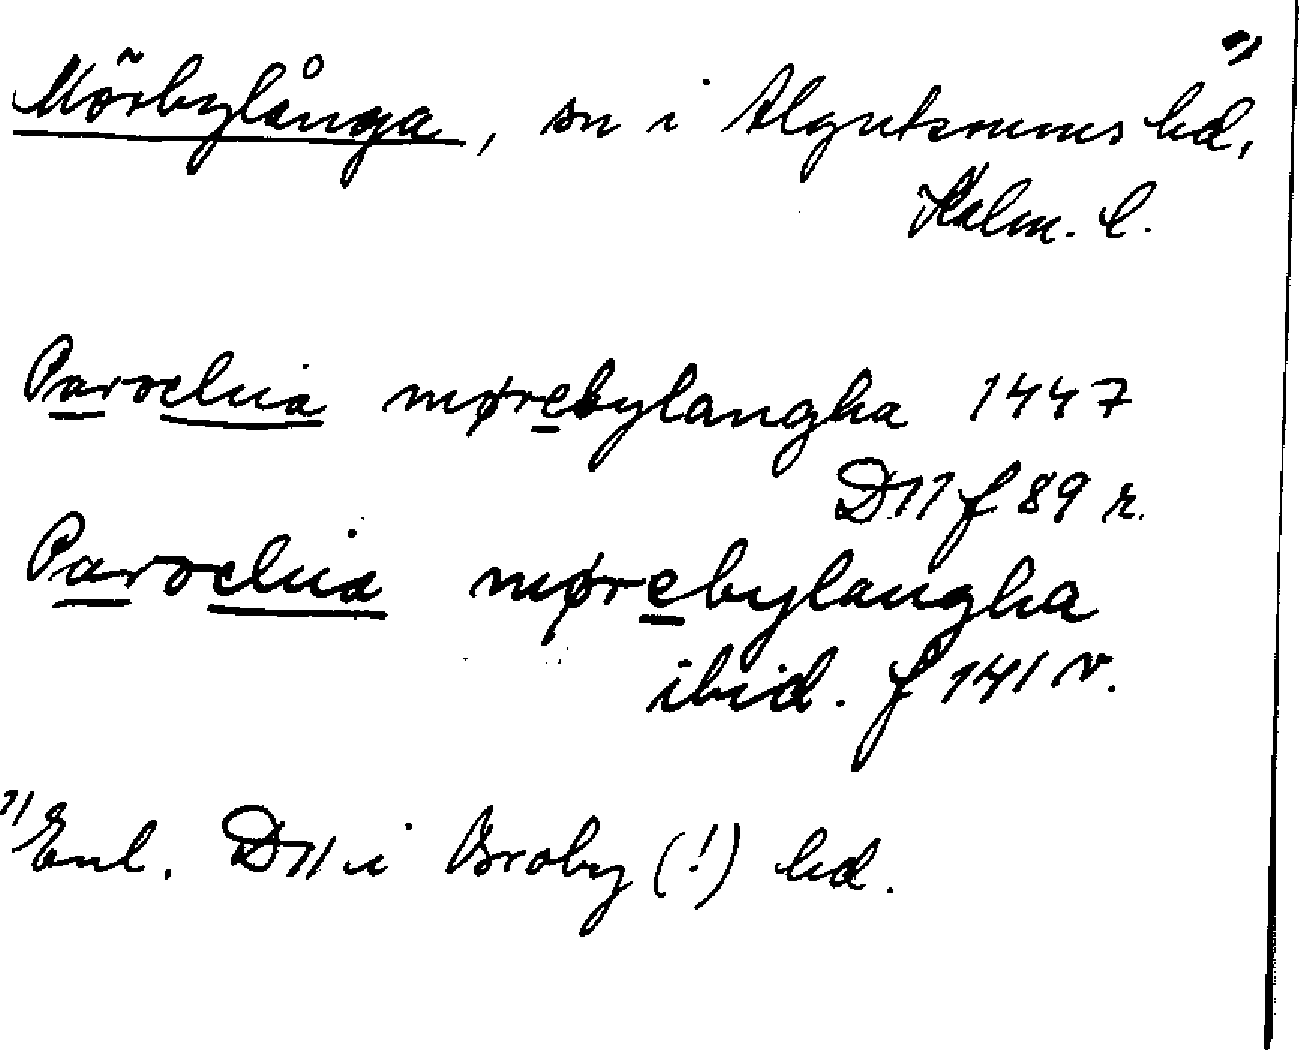 Mörbylånga, sn i Algutsrums hd, 1)
Kalm. l.
Parochia mørebylangha 1447
D11 f 89 r.
Parochia mørebylangha
ibid. f 141 v.
1) Enl. D11 i Broby (!) hd.